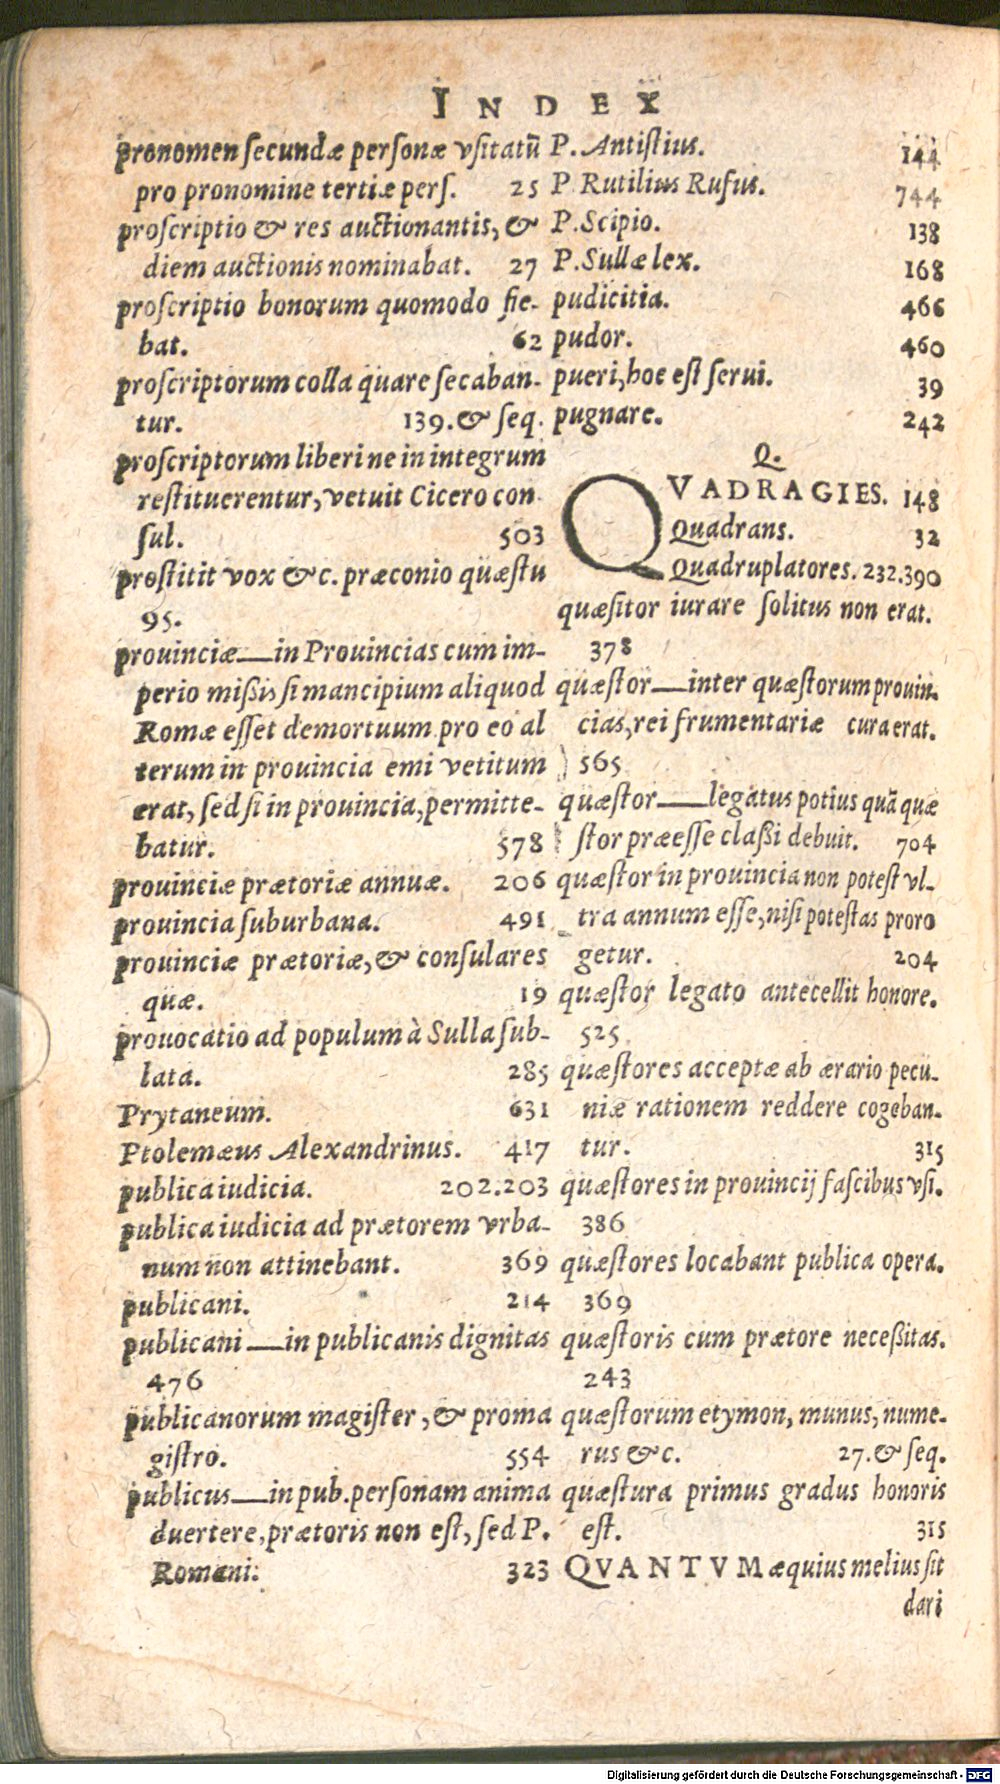 INDEX
pronomen ſecundæ perſonæ vſitatū
pro pronomine tertiæ perſ. 25
proſcriptio & res auctionantis, &
diem auctionis nominabat. 27
proſcriptio bonorum quomodo fie-
bat. 62
proſcriptorum colla quare ſecaban-
tur. 139. & ſeq.
proſcriptorum liberi ne in integrum
reſtituerentur, vetuit Cicero con
ſul. 503
proſtitit vox &c. præconio quæſtu
95.
prouinciæ—in Prouincias cum im-
perio miſsis ſi mancipium aliquod
Romæ eſſet demortuum pro eo al
terum in prouincia emi vetitum
erat, ſed ſi in prouincia, permitte-
batur. 578
prouinciæ prætoriæ annuæ. 206
prouincia ſuburbana. 491
prouinciæ prætoriæ, & conſulares
quæ. 19
prouocatio ad populum à Sulla ſub-
lata. 285
Prytaneum. 631
Ptolemæus Alexandrinus. 417
publica iudicia. 202.203
publica iudicia ad prætorem vrba-
num non attinebant. 369
publicani. 214
publicani—in publicanis dignitas
476
publicanorum magiſter, & proma
giſtro. 554
publicus—in pub. perſonam anima
duertere, prætoris non eſt, ſed P.
Romani: 323
P. Antiſtius. 144
P. Rutilius Rufus. 744
P. Scipio. 138
P. Sullæ lex. 168
pudicitia. 466
pudor. 460
pueri, hoc eſt ſerui. 39
pugnare. 242
Q.
QVADRAGIES. 148
Quadrans. 32
Quadruplatores. 232.390
quæſitor iurare ſolitus non erat.
378
quæſtor—inter quæſtorum prouin-
cias, rei frumentariæ cura erat.
565
quæſtor—legatus potius quā quæ
ſtor præeſſe claſsi debuit. 704
quæſtor in prouincia non poteſt vl-
tra annum eſſe, niſi poteſtas proro
getur. 204
quæſtor legato antecellit honore.
525
quæſtores acceptæ ab ærario pecu-
niæ rationem reddere cogeban-
tur. 315
quæſtores in prouincij faſcibus vſi.
386
quæſtores locabant publica opera.
369
quæſtoris cum prætore neceſsitas.
243
quæſtorum etymon, munus, nume-
rus &c. 27. & ſeq.
quæſtura primus gradus honoris
eſt. 315
QVANTVM æquius melius ſit
dari
Digitalisierung gefördert durch die Deutsche Forschungsgemeinschaft - DFG